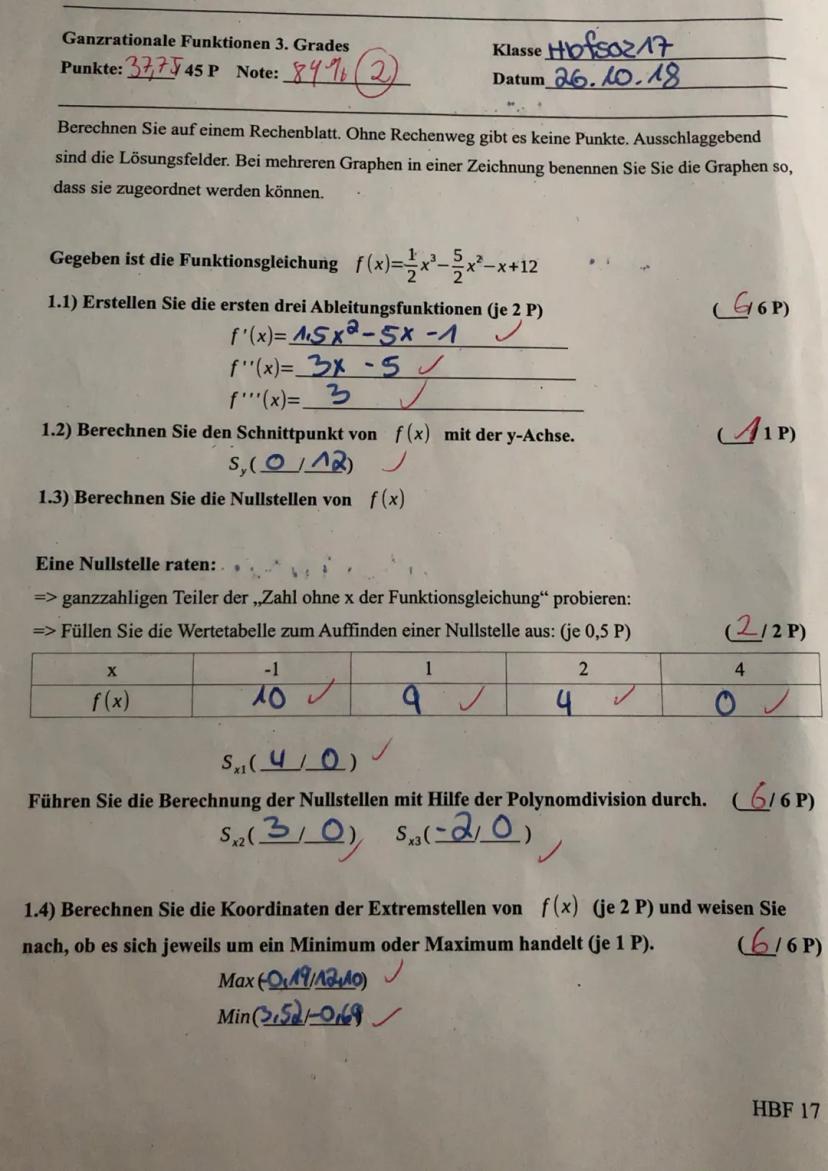 Ganzrationale Funktionen 3. Grades
Klasse Hbfsoz17
Punkte: 37,75 45 P Note: 84% (2)
Datum 26.10.18
Berechnen Sie auf einem Rechenblatt. Ohne Rechenweg gibt es keine Punkte. Ausschlaggebend
sind die Lösungsfelder. Bei mehreren Graphen in einer Zeichnung benennen Sie Sie die Graphen so,
dass sie zugeordnet werden können.
Gegeben ist die Funktionsgleichung f(x)=1/2x³−5/2x²−x+12
1.1) Erstellen Sie die ersten drei Ableitungsfunktionen (je 2 P) (6/6 P)
f'(x)= 1,5x²-5x-1
f''(x)= 3x-5
f'''(x)= 3
1.2) Berechnen Sie den Schnittpunkt von f(x) mit der y-Achse. (1/1 P)
Sy(0/12)
1.3) Berechnen Sie die Nullstellen von f(x)
Eine Nullstelle raten:
=> ganzzahligen Teiler der „Zahl ohne x der Funktionsgleichung“ probieren:
=> Füllen Sie die Wertetabelle zum Auffinden einer Nullstelle aus: (je 0,5 P) (2/2 P)
x -1 1 2 4
f(x) 10 9 4 0
Sx1(4/0)
Führen Sie die Berechnung der Nullstellen mit Hilfe der Polynomdivision durch. (6/6 P)
Sx2(3/0) Sx3(-2/0)
1.4) Berechnen Sie die Koordinaten der Extremstellen von f(x) (je 2 P) und weisen Sie
nach, ob es sich jeweils um ein Minimum oder Maximum handelt (je 1 P). (6/6 P)
Max(-0,19/12,10)
Min(3,52/-0,69
HBF 17